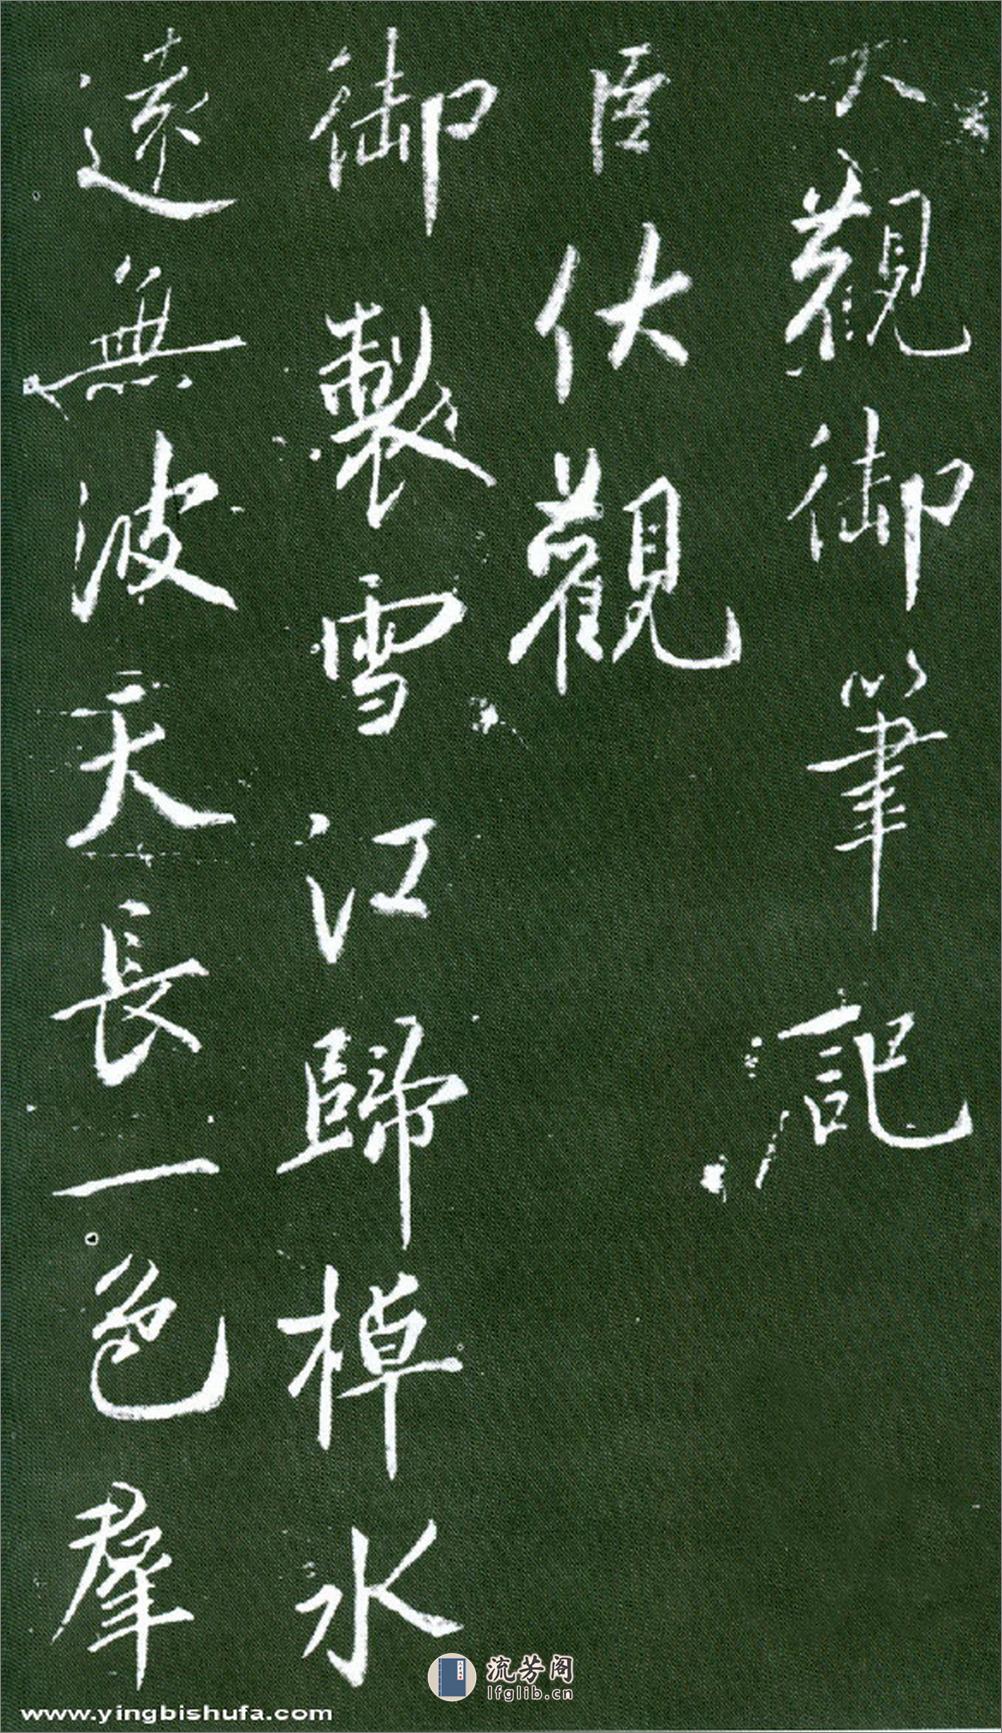 大觀御筆記
臣伏觀
御製雪江歸棹水
遠無波天長一色羣
流芳阁
lfglib.cn
www.yingbishufa.com